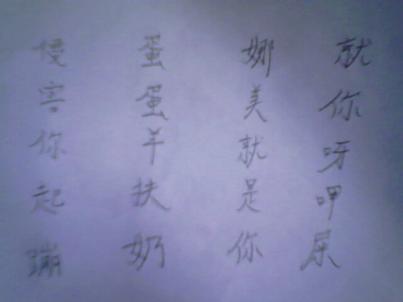 侵害你起蹦
蛋蛋羊扶奶
娜美就是你
就你呀呷尿